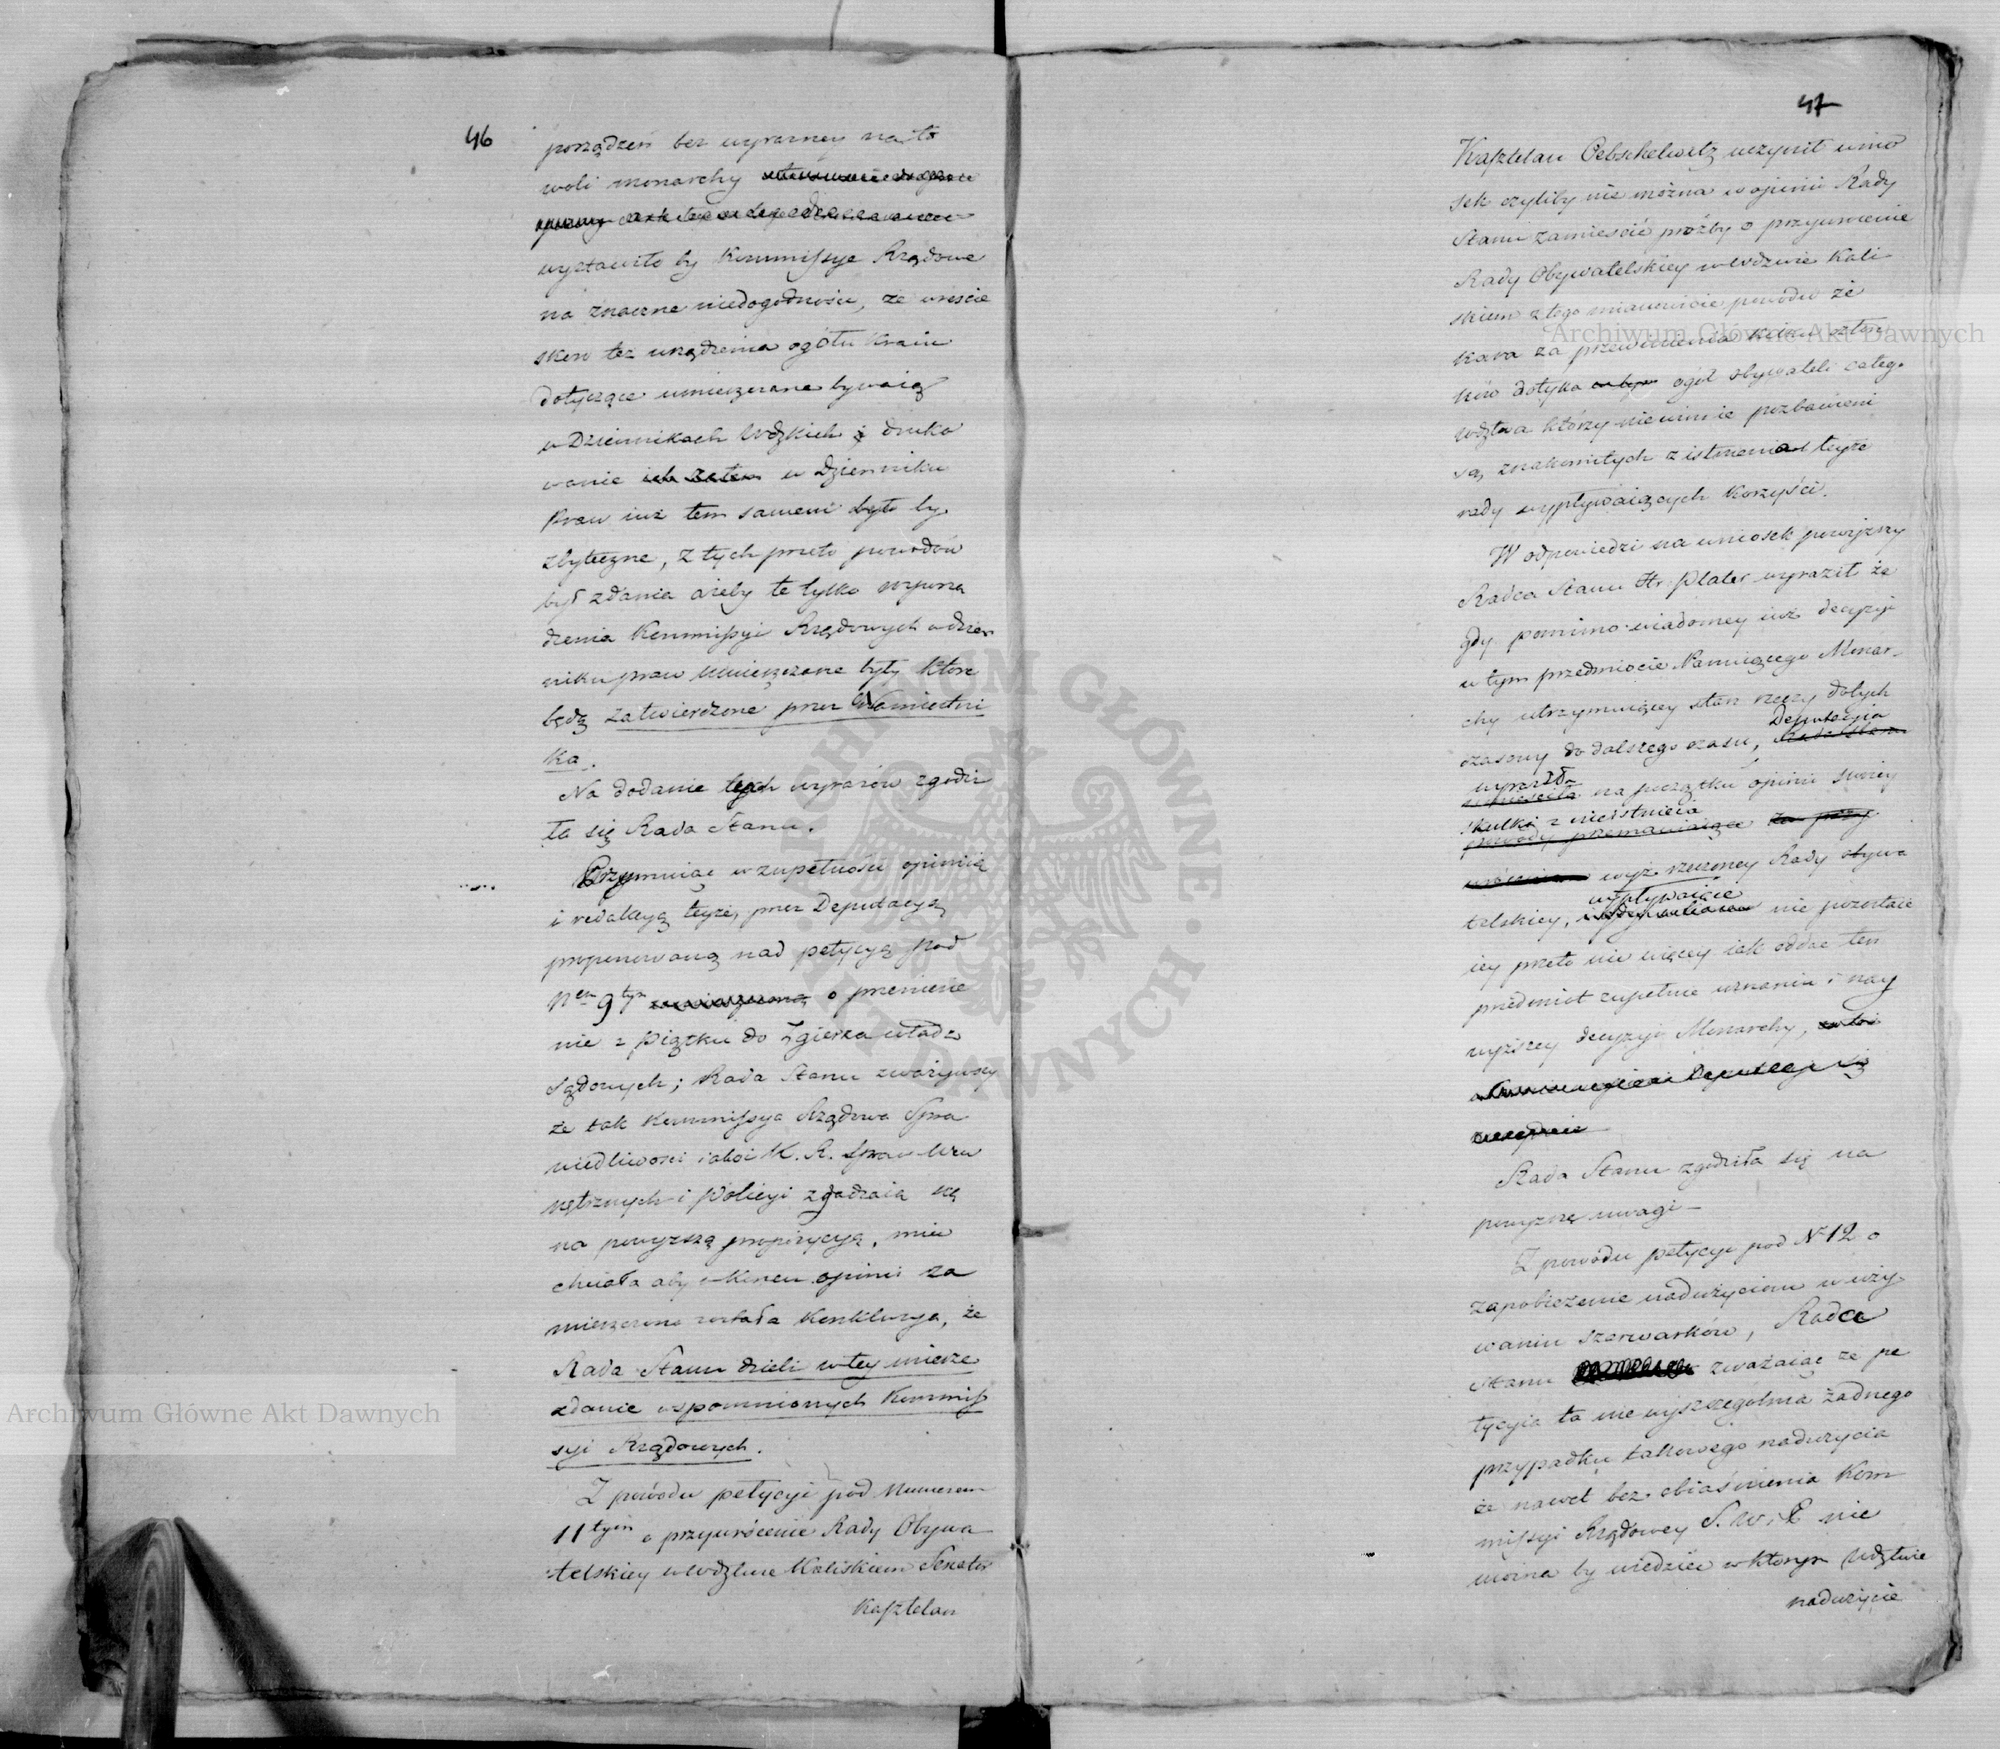 46
porządzeń bez wyraźney na to
woli monarchy
wystawiło by Kommissye Rządowe
na znaczne niedogodności, że wreście
skoro też urządzenia ogółu kraiu
dotyczące umieszczane bywaią
w Dziennikach Wdzkich i druko
wanie ich zatem w dzienniku
Praw iuż tem samem było by
zbyteczne, z tych przeto powodów
był zdania ażeby te tylko urzą
dzenia Kommissyi Rządowych w dzien
niku praw umieszczone były które
będą zatwierdzone przez Namiestni
ka.
Na dodanie tych wyrazów zgodzi
ła się Rada Stanu.
Przyymuiąc w zupełności opinią
i redakcyą teyże, przez Deputacyą
proponowaną nad petycyą pod
Nem 9tym o przeniesie
nie z Piątku do Zgierza władz
Sądowych; Rada Stanu zważywszy
że tak Kommissya Rządowa Spra
wiedliwości iakoi K. R. Spraw Wew
nętrznych i Policyi zgadzaią się
na powyższą propozycyą, mieć
chciała aby w końcu opinii za
mieszczona została konkluzya, że
Rada Stanu dzieli w tey mierze
zdanie wspomnionych Kommis
syi Rządowych.
Z powodu petycyi pod Numerem
11tym o przywrócenie Rady Obywa
telskiey w Wdztwie Kaliskiem Senator
Kasztelan
47
Kasztelan Oebschelwitz uczynił wnio
sek czyliby nie można w opinii Rady
Stanu zamieścić prośby o przywrócenie
Rady Obywatelskiey w Wdztwie Kali
skiem z tego mianowicie powodu że
kara za przewinienia kilku człon
ków dotyka ogół obywateli całego
Wdztwa którzy niewinnie pozbawieni
są, znakomitych z istnienia teyże
rady wypływaiących korzyści.
W odpowiedzi na wniosek powyższy
Radca Stanu Hr: Plater wyraził że
gdy pomimo wiadomey iuż decyzyi
w tym przedmiocie Panuiącego Monar-
chy utrzymuiącey stan rzeczy dotych
czasowy do dalszego czasu, Deputacyia
wyraziła na początku opinii swoiey
skutki z nieistnieia
wyż rzeczoney Rady obywa
telskiey, wypływaiące nie pozostaie
iey przeto nic więcey iak oddać ten
przedmiot zupełnie uznaniu i nay
wyższey decyzyi Monarchy,
Rada Stanu zgodziła się na
powyższę uwagi —
Z powodu petycyi pod Nr 12 o
zapobieżenie nadużyciom w uży
waniu szarwarków, Rada
Stanu zważaiąc że pe
tycyia ta nie wyszczególnia żadnego
przypadku takowego nadużycia
że nawet bez obiaśnienia Kom
missyi Rządowey S. W. i P. nie
można by wiedzieć w którym Wdztwie
nadużycie
Archiwum Główne Akt Dawnych
Archiwum Główne Akt Dawnych
ARCHIWUM GŁÓWNE AKT DAWNYCH